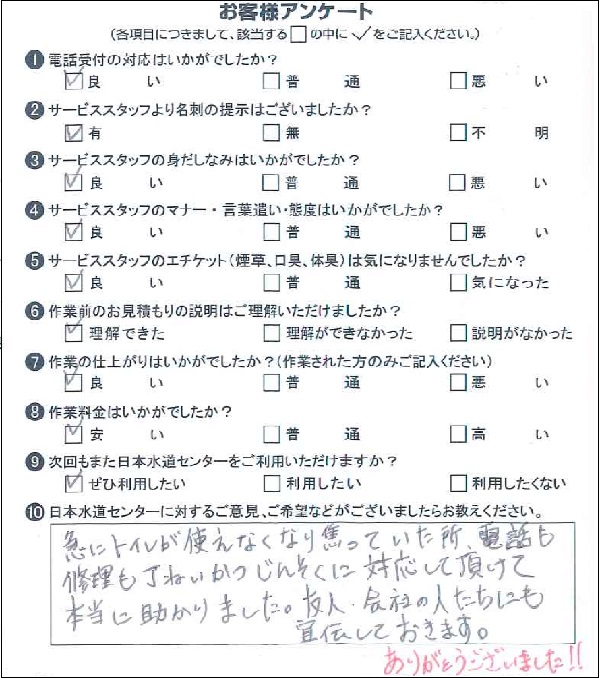 お客様アンケート
(各項目につきまして、該当する□の中に✓をご記入ください。)
❶ 電話受付の対応はいかがでしたか?
☑ 良い □ 普通 □ 悪い
❷ サービススタッフより名刺の提示はございましたか?
☑ 有 □ 無 □ 不明
❸ サービススタッフの身だしなみはいかがでしたか?
☑ 良い □ 普通 □ 悪い
❹ サービススタッフのマナー・言葉遣い・態度はいかがでしたか?
☑ 良い □ 普通 □ 悪い
❺ サービススタッフのエチケット(煙草、口臭、体臭)は気になりませんでしたか?
☑ 良い □ 普通 □ 気になった
❻ 作業前のお見積もりの説明はご理解いただけましたか?
☑ 理解できた □ 理解ができなかった □ 説明がなかった
❼ 作業の仕上がりはいかがでしたか?(作業された方のみご記入ください)
☑ 良い □ 普通 □ 悪い
❽ 作業料金はいかがでしたか?
☑ 安い □ 普通 □ 高い
❾ 次回もまた日本水道センターをご利用いただけますか?
☑ ぜひ利用したい □ 利用したい □ 利用したくない
❿ 日本水道センターに対するご意見、ご希望などがございましたらお教えください。
急にトイレが使えなくなり焦っていた所、電話も
修理も丁ねいかつじんそくに対応して頂けて
本当に助かりました。友人・会社の人たちにも
宣伝しておきます。
ありがとうございました!!